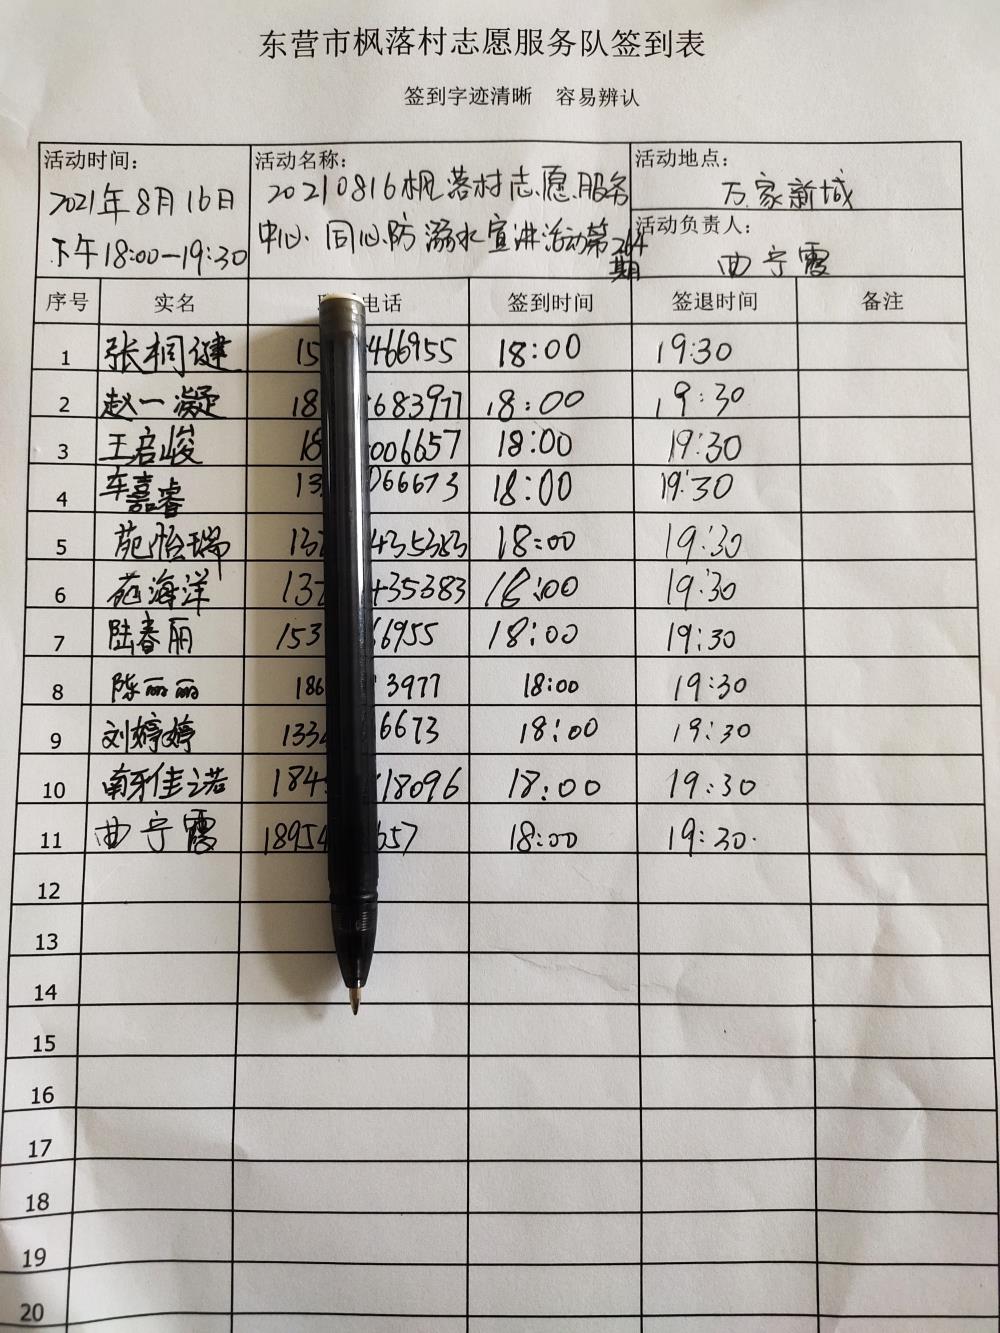 东营市枫落村志愿服务队签到表
签到字迹清晰 容易辨认
活动时间:
2021年8月16日
下午18:00—19:30
活动名称:
20210816枫落村志愿服务
中心同心防溺水宣讲活动第264
期
活动地点:
万家新城
活动负责人:
曲宁霞
序号 实名 电话 签到时间 签退时间 备注
1 张桐健 15 466955 18:00 19:30
2 赵一凝 18 683977 18:00 19:30
3 王启峻 18 006657 18:00 19:30
4 车嘉睿 13 066673 18:00 19:30
5 苑怡瑞 13 435383 18:00 19:30
6 苑海洋 13 35383 18:00 19:30
7 陆春丽 153 6955 18:00 19:30
8 陈丽丽 186 3977 18:00 19:30
9 刘婷婷 133 6673 18:00 19:30
10 南牙佳之诺 184 18096 18:00 19:30
11 曲宁霞 18954 657 18:00 19:30.
12
13
14
15
16
17
18
19
20